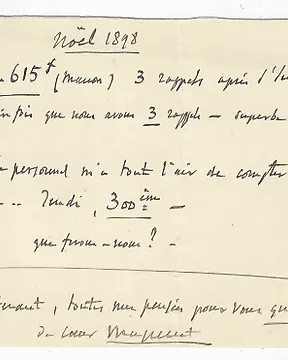 Noël 1898
615f (Manon) 3 rappels après l'
fois que nous avons 3 rappels — superbe
personnel m'a tout l'air de compter
.. Jeudi, 300ème —
que ferons-nous? -
, toutes mes pensées pour vous
du cœur